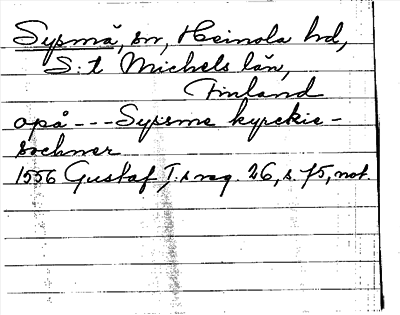 Sysmä, sn, Heinola hd,
S:t Michels län,
Finland
opå --- Syssme kyrckie-
sochner
1556 Gustaf I:s reg. 26, s. 75, not.